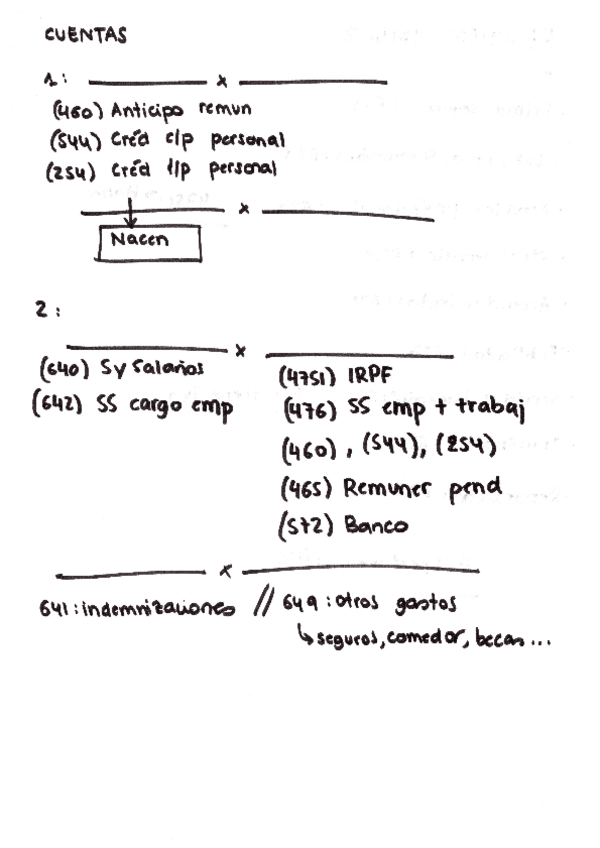 CUENTAS
1: x
(460) Anticipo remun
(544) Créd c/p personal
(254) Créd l/p personal
x
Nacen
2:
x
(640) Sy Salarios
(642) SS cargo emp
(4751) IRPF
(476) SS emp + trabaj
(460), (544), (254)
(465) Remuner pend
(572) Banco
x
641: indemnizaciones // 649: otros gastos
↳ seguros, comedor, becas...